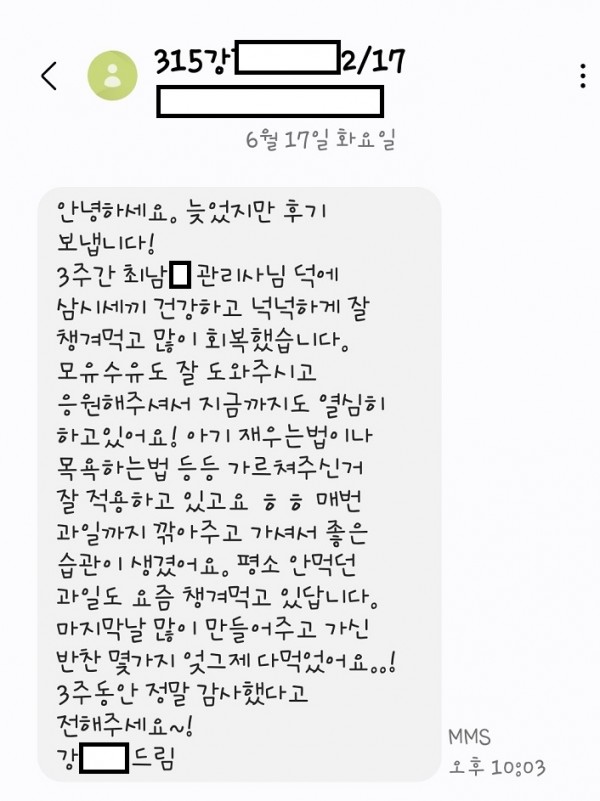 315강 2/17
6월 17일 화요일
안녕하세요. 늦었지만 후기
보냅니다!
3주간 최남 관리사님 덕에
삼시세끼 건강하고 넉넉하게 잘
챙겨먹고 많이 회복했습니다.
모유수유도 잘 도와주시고
응원해주셔서 지금까지도 열심히
하고있어요! 아기 재우는법이나
목욕하는법 등등 가르쳐주신거
잘 적용하고 있고요 ㅎㅎ 매번
과일까지 깎아주고 가셔서 좋은
습관이 생겼어요. 평소 안먹던
과일도 요즘 챙겨먹고 있답니다.
마지막날 많이 만들어주고 가신
반찬 몇가지 엊그제 다먹었어요..!
3주동안 정말 감사했다고
전해주세요~!
강 드림
MMS
오후 10:03